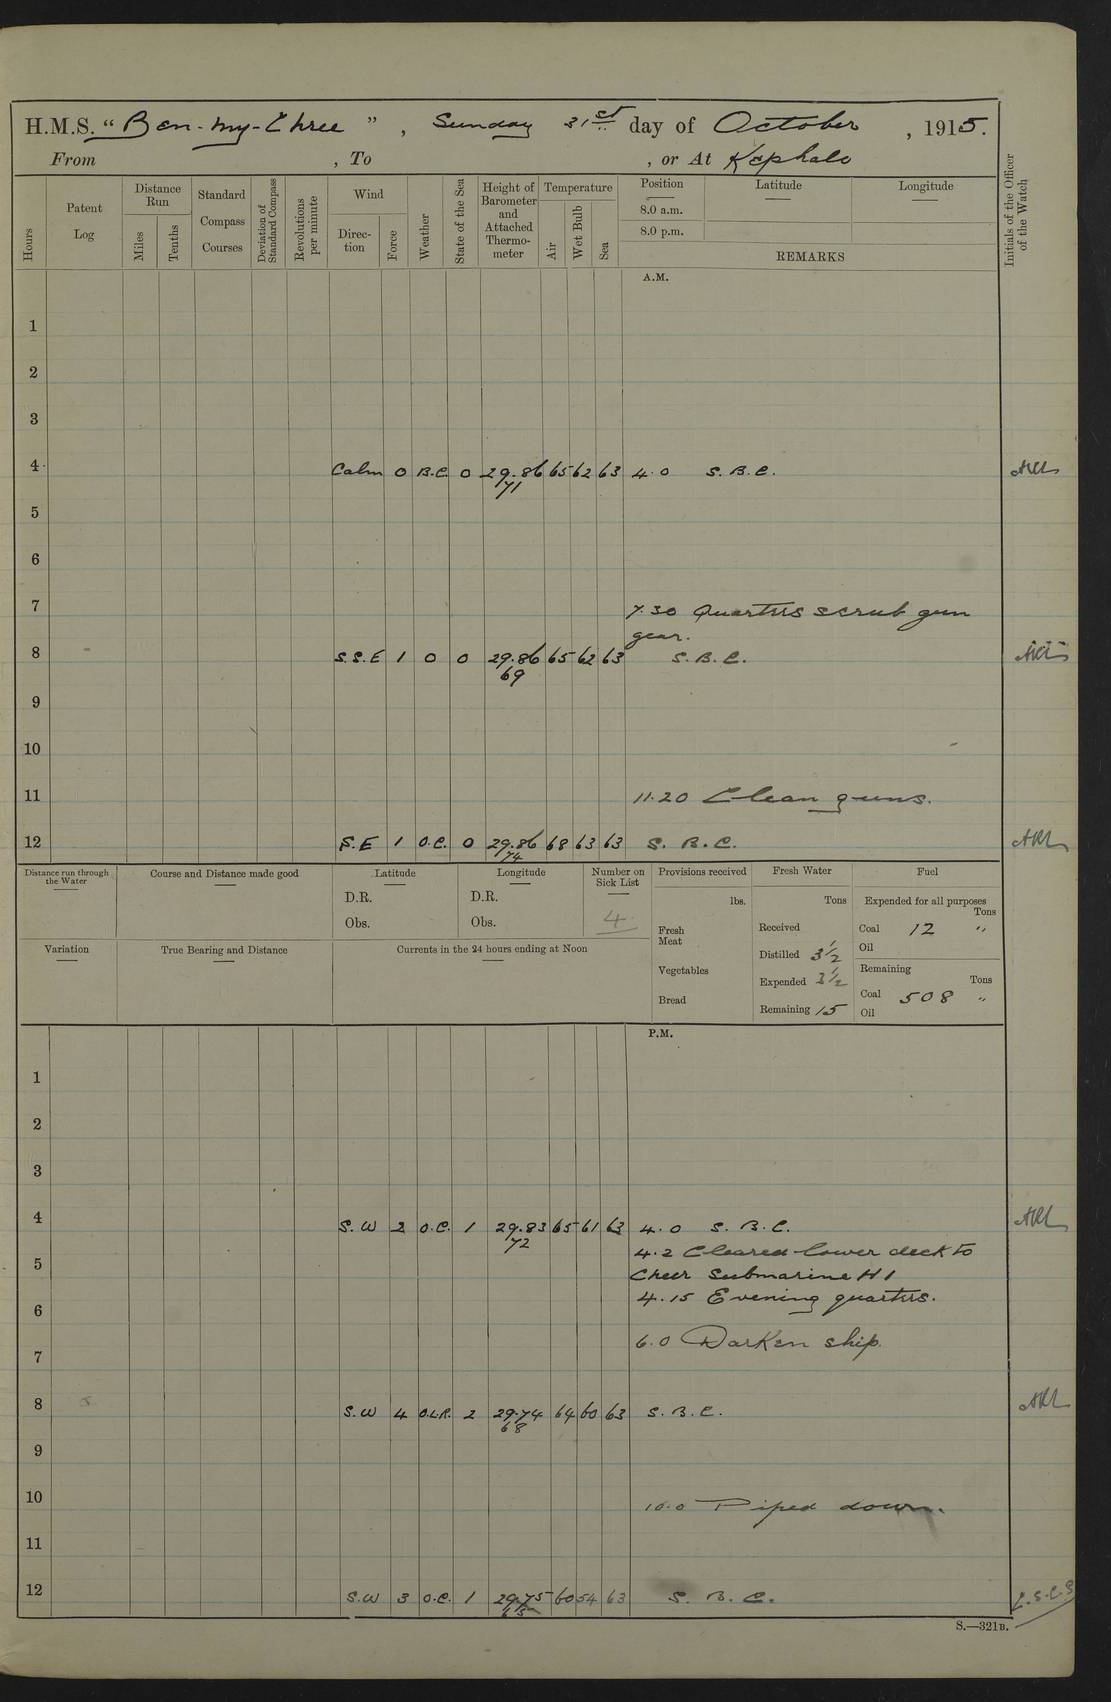 H.M.S. “Ben-my-Chree”, Sunday 31st day of October, 1915.
From , To , or At Kephalo
Hours
Patent Log
Distance Run
Miles
Tenths
Standard Compass Courses
Deviation of Standard Compass
Revolutions per minute
Wind
Direc-tion
Force
Weather
State of the Sea
Height of Barometer and Attached Thermo-meter
Temperature
Air
Wet Bulb
Sea
Position
8.0 a.m.
8.0 p.m.
Latitude
Longitude
REMARKS
Initials of the Officer of the Watch
A.M.
1
2
3
4 Calm 0 B.C. 0 29.86 65 62 63 4.0 S.B.C.
71
5
6
7 7.30 Quarters scrub gun
gear.
8 S.S.E 1 0 0 29.86 65 62 63 S.B.C.
69
9
10
11 11.20 Clean guns.
12 S.E 1 O.C. 0 29.86 68 63 63 S.B.C.
74
Distance run through the Water
Course and Distance made good
Latitude
D.R.
Obs.
Longitude
D.R.
Obs.
Number on Sick List
4
Provisions received
lbs.
Fresh Meat
Vegetables
Bread
Fresh Water
Tons
Received
Distilled 3½
Expended 3½
Remaining 15
Fuel
Expended for all purposes
Tons
Coal 12 „
Oil
Remaining
Tons
Coal 508 „
Oil
Variation
True Bearing and Distance
Currents in the 24 hours ending at Noon
P.M.
1
2
3
4 S.W 2 O.C. 1 29.83 65 61 63 4.0 S.B.C.
72
4.2 Cleared lower deck to
5 Cheer Submarine H1
4.15 Evening quarters.
6
6.0 Darken ship.
7
8 S.W 4 O.L.R. 2 29.74 64 60 63 S.B.C.
68
9
10 10.0 Piped down.
11
12 S.W 3 O.C. 1 29.75 60 54 63 S.B.C.
S.—321B.